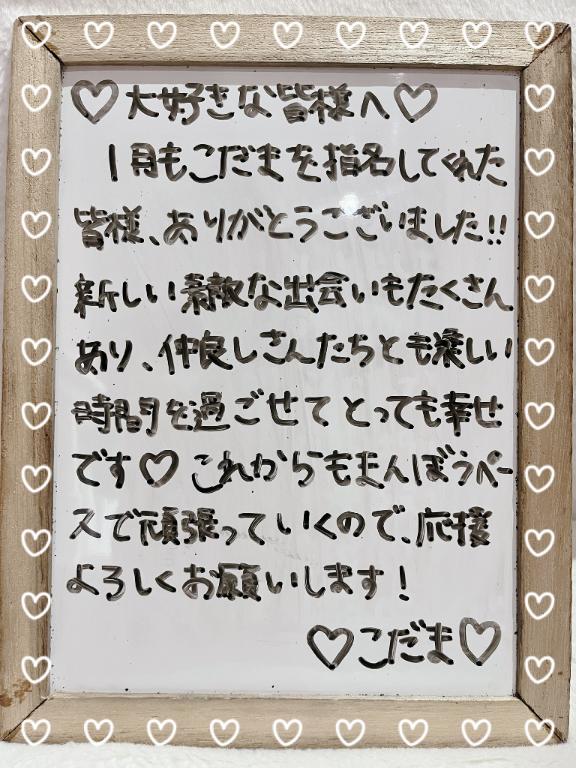 ♡大好きな皆様へ♡
1月もこだまを指名してくれた
皆様、ありがとうございました!!
新しい素敵な出会いもたくさん
あり、仲良しさんたちとも楽しい
時間を過ごせてとっても幸せ
です♡これからもまんぼうペー
スで頑張っていくので、応援
よろしくお願いします!
♡こだま♡